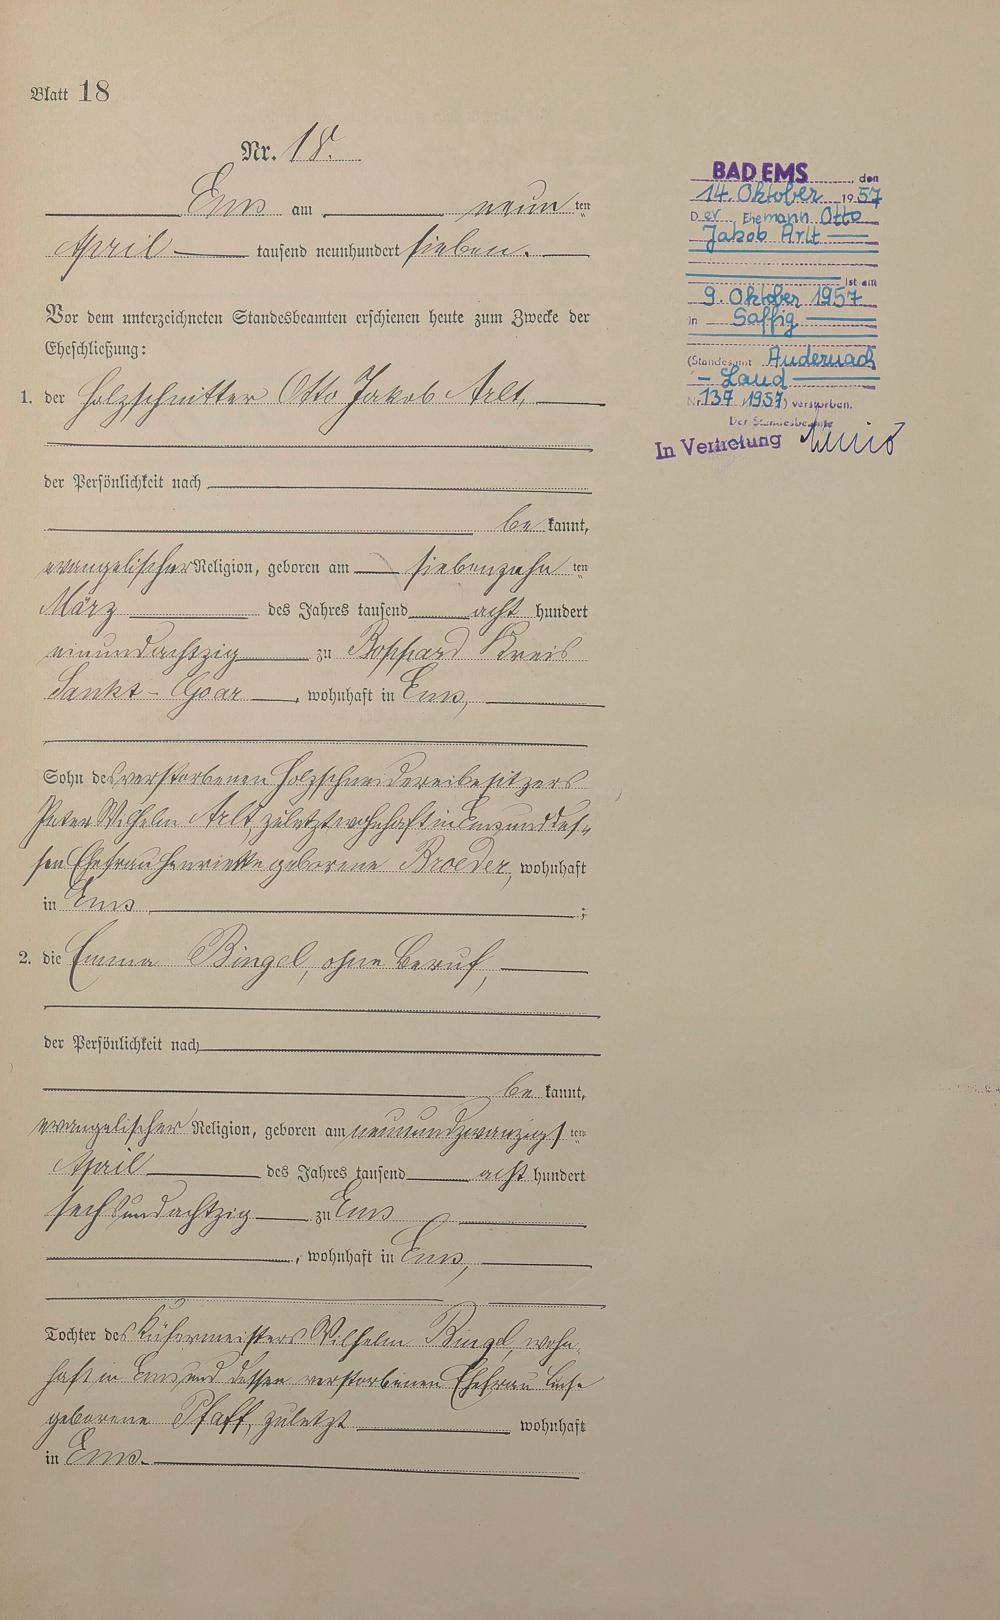 Blatt 18
Nr. 18.
Ems am neun ten
April tausend neunhundert sieben.
Vor dem unterzeichneten Standesbeamten erschienen heute zum Zwecke der
Eheschließung:
1. der Holzschnitter Otto Jakob Arlt,
der Persönlichkeit nach
be kannt,
evangelischer Religion, geboren am siebenzehn ten
März des Jahres tausend acht hundert
einundachtzig zu Boppard Kreis
Sankt-Goar, wohnhaft in Ems,
Sohn des verstorbenen Holzschneidereibesitzers
Peter Wilhelm Arlt, zuletzt wohnhaft in Ems und des-
sen Ehefrau Henriette geborene Broeder, wohnhaft
in Ems ;
2. die Emma Bingel, ohne Beruf,
der Persönlichkeit nach
be kannt,
evangelischer Religion, geboren am neunundzwanzigs ten
April des Jahres tausend acht hundert
sechsundachtzig zu Ems
, wohnhaft in Ems,
Tochter des Wilhelm Bingel, wohn-
haft in Ems und dessen verstorbenen Ehefrau
geborene Pfaff, zuletzt wohnhaft
in Ems.
BAD EMS, den
14. Oktober 1957
Der Ehemann Otto
Jakob Arlt
ist am
9. Oktober 1957
in Saffig
(Standesamt Andernach
- Land
Nr. 137 /1957) verstorben.
Der Standesbeamte
In Vertretung